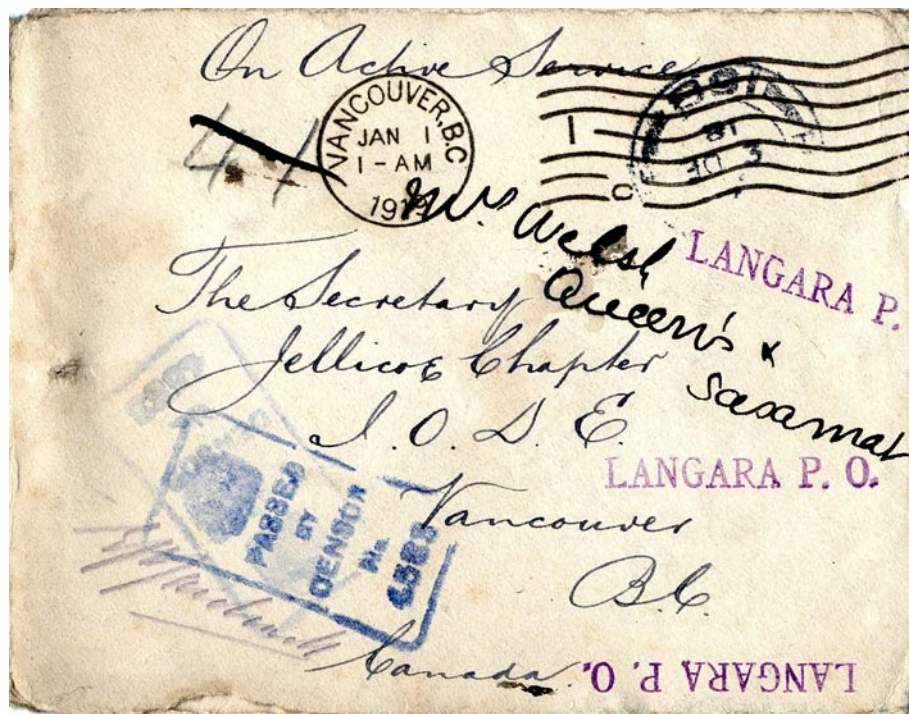 On Active Service
VANCOUVER, B.C.
JAN 1
1 - AM
1919
Mrs Welsh
Queen's &
Sasamat
LANGARA P.
The Secretary
Jellicoe Chapter
I. O. D. E.
Vancouver
B.C.
Canada
LANGARA P. O.
PASSED
BY
CENSOR
No
LANGARA P. O.